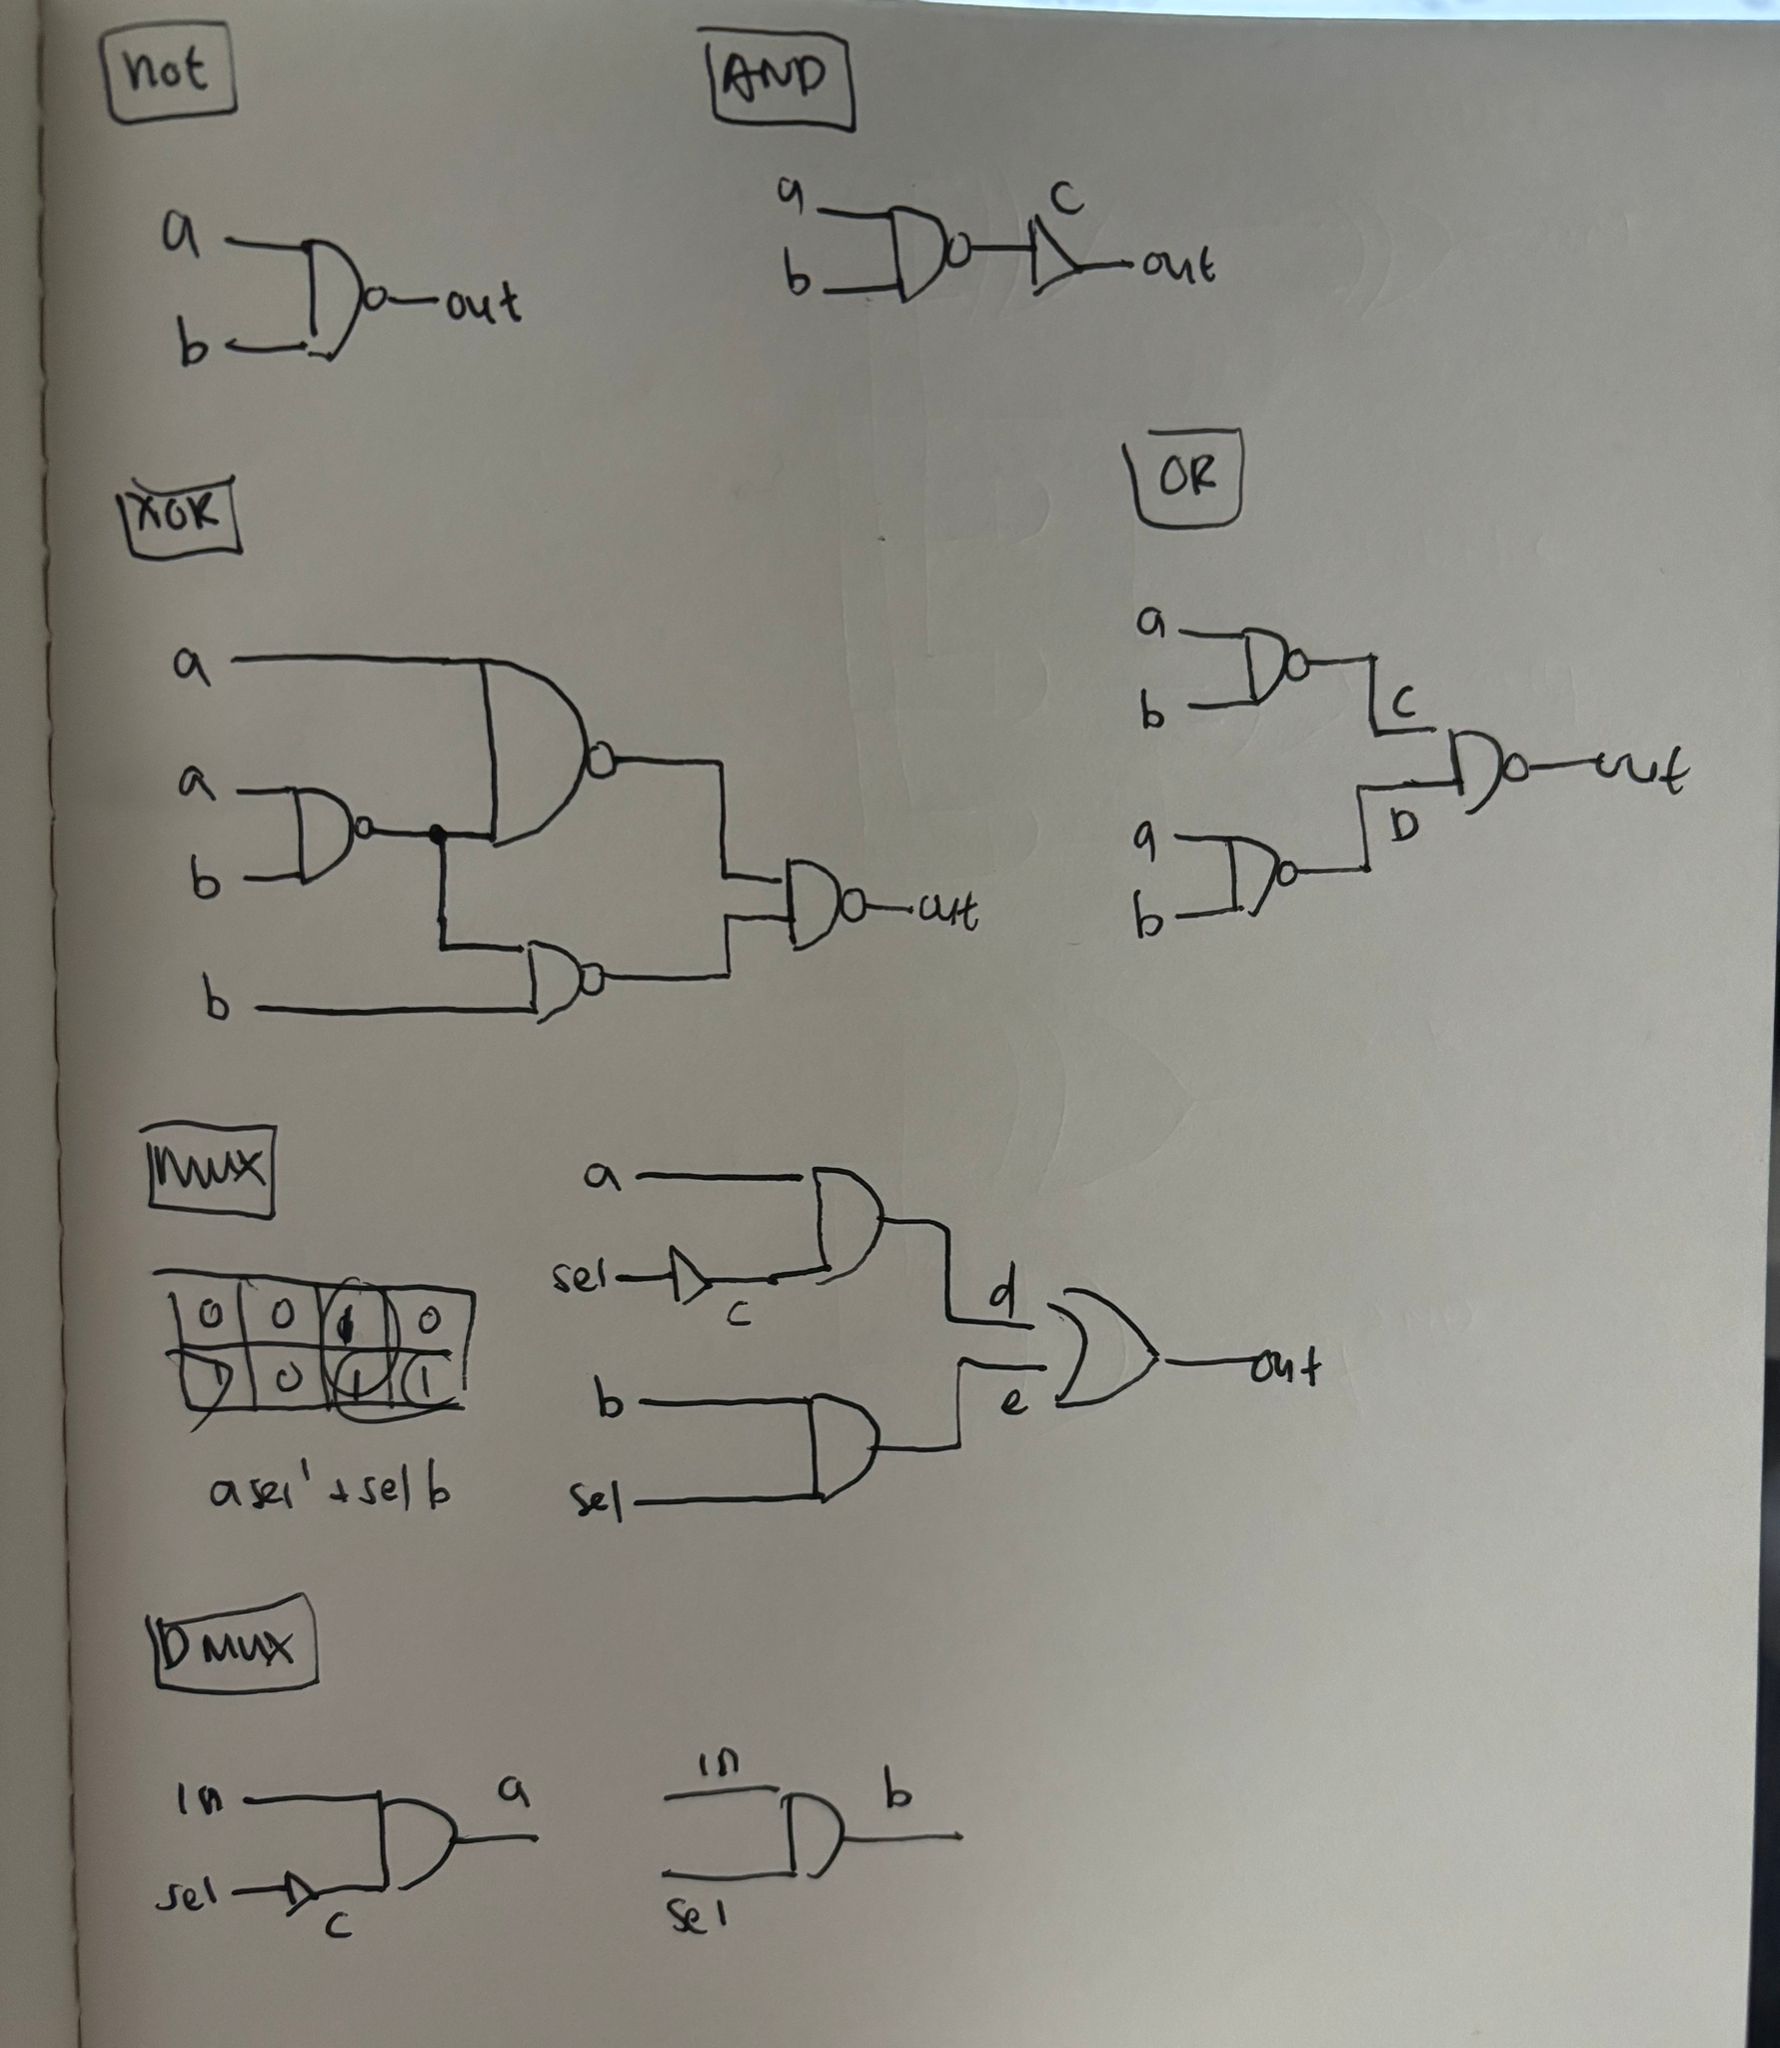 not
AND
a
b
out
a
b
C
out
XOR
OR
a
a
b
b
out
a
b
C
a
b
D
out
MUX
0 0 1 0
1 0 1 1
a sel' + sel b
a
sel
c
b
sel
d
e
out
DMUX
in
sel
c
a
in
sel
b